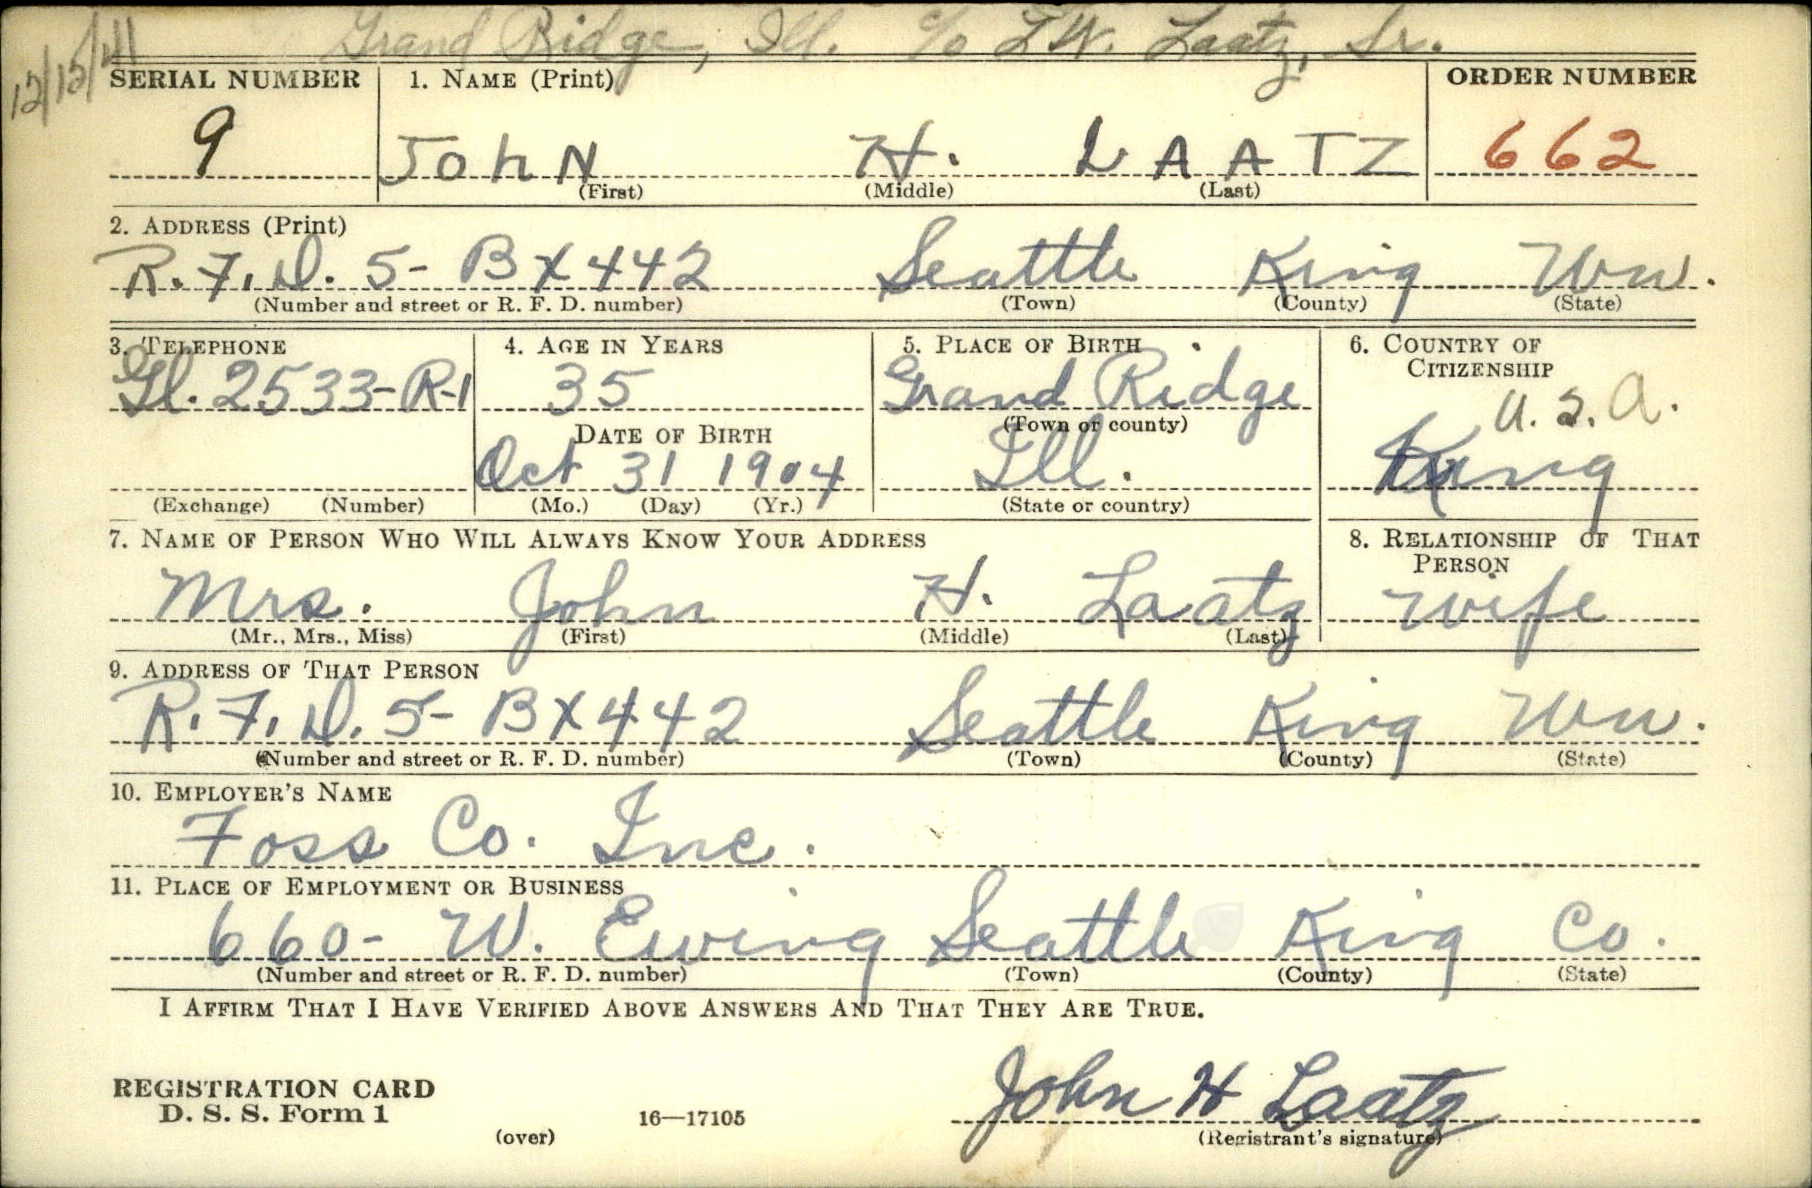 12/15/41
Grand Ridge, Ill. c/o L.W. Laatz, Sr.
SERIAL NUMBER 1. NAME (Print) ORDER NUMBER
9 JOHN H. LAATZ 662
(First) (Middle) (Last)
2. ADDRESS (Print)
R.F.D. 5- BX442 Seattle King Wn.
(Number and street or R. F. D. number) (Town) (County) (State)
3. TELEPHONE 4. AGE IN YEARS 5. PLACE OF BIRTH 6. COUNTRY OF CITIZENSHIP
Gl. 2533-R-1 35 Grand Ridge U.S.A.
DATE OF BIRTH (Town or county)
Oct 31 1904 Ill. King
(Exchange) (Number) (Mo.) (Day) (Yr.) (State or country)
7. NAME OF PERSON WHO WILL ALWAYS KNOW YOUR ADDRESS 8. RELATIONSHIP OF THAT PERSON
Mrs. John H. Laatz wife
(Mr., Mrs., Miss) (First) (Middle) (Last)
9. ADDRESS OF THAT PERSON
R.F.D. 5- BX442 Seattle King Wn.
(Number and street or R. F. D. number) (Town) (County) (State)
10. EMPLOYER'S NAME
Foss Co. Inc.
11. PLACE OF EMPLOYMENT OR BUSINESS
660- W. Ewing Seattle King Co.
(Number and street or R. F. D. number) (Town) (County) (State)
I AFFIRM THAT I HAVE VERIFIED ABOVE ANSWERS AND THAT THEY ARE TRUE.
REGISTRATION CARD
D. S. S. Form 1 16—17105 John H Laatz
(over) (Registrant's signature)